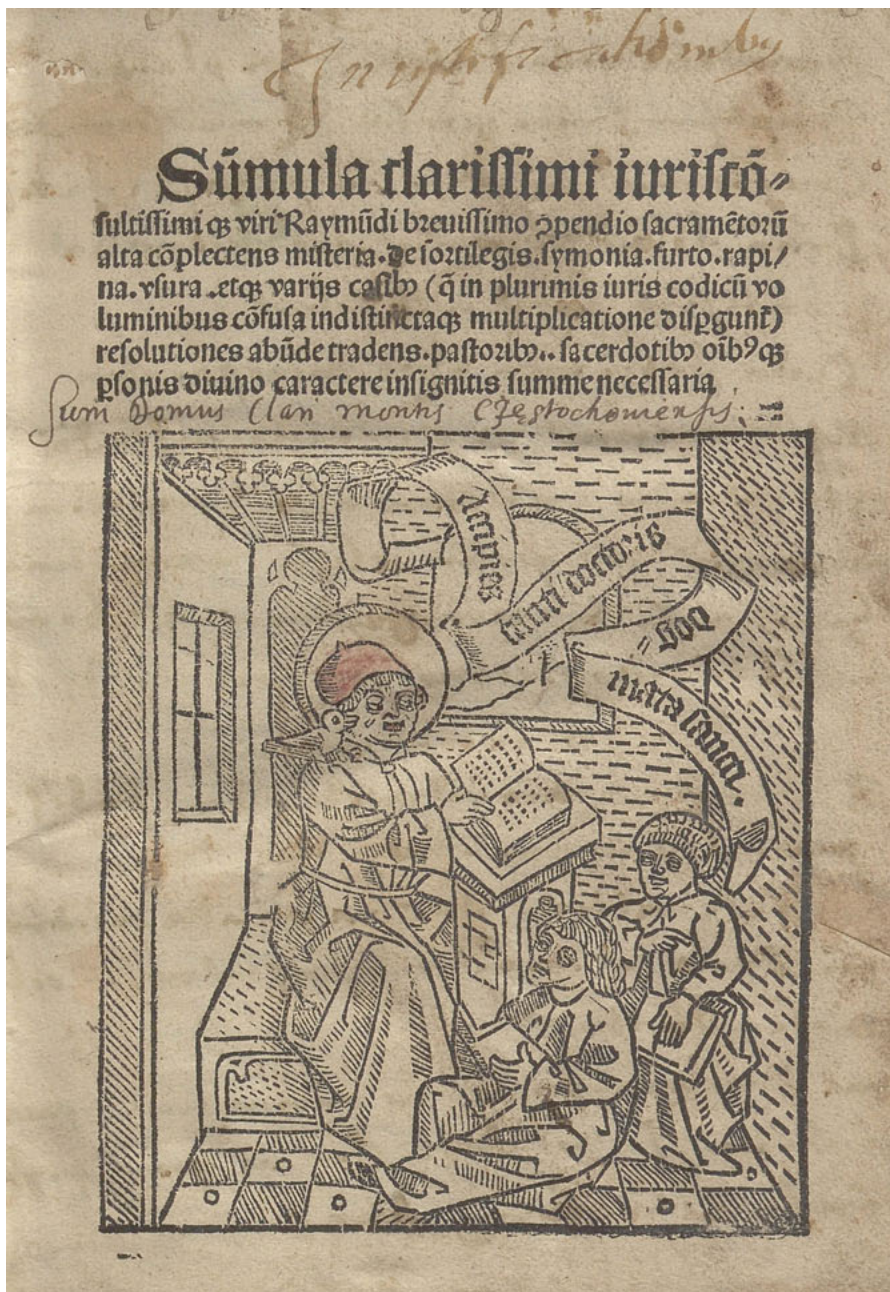 In iustificationibus
Sūmula clarissimi iuriscō⸗
sultissimi qꝫ viri Raymūdi breuissimo ꝯpendio sacramētoꝝū
alta cōplectens misteria. de sortilegis. symonia. furto. rapi/
na. vsura .etqꝫ varijs casibꝰ (q̄ in plurimis iuris codicū vo
luminibus cōfusa indistinctaqꝫ multiplicatione dispgunt̄)
resolutiones abūde tradens. pastoribꝰ.. sacerdotibꝰ oībꝰqꝫ
ꝑsonis diuino caractere insignitis summe necessaria
Sum Domus Clari montis Częstochouiensis.
Accipies
tanti doctoris
dog⸗
mata sancta.